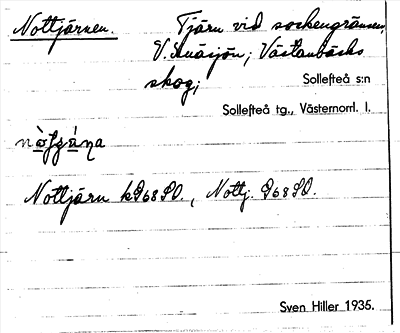 Nottjärnen. Tjärn vid sockengränsen,
V. Knäsjön; Västanbäcks
skog; Sollefteå s:n
Sollefteå tg., Västernorrl. l.
Nottjärn k G68SO., Nottj. G68SO.
Sven Hiller 1935.